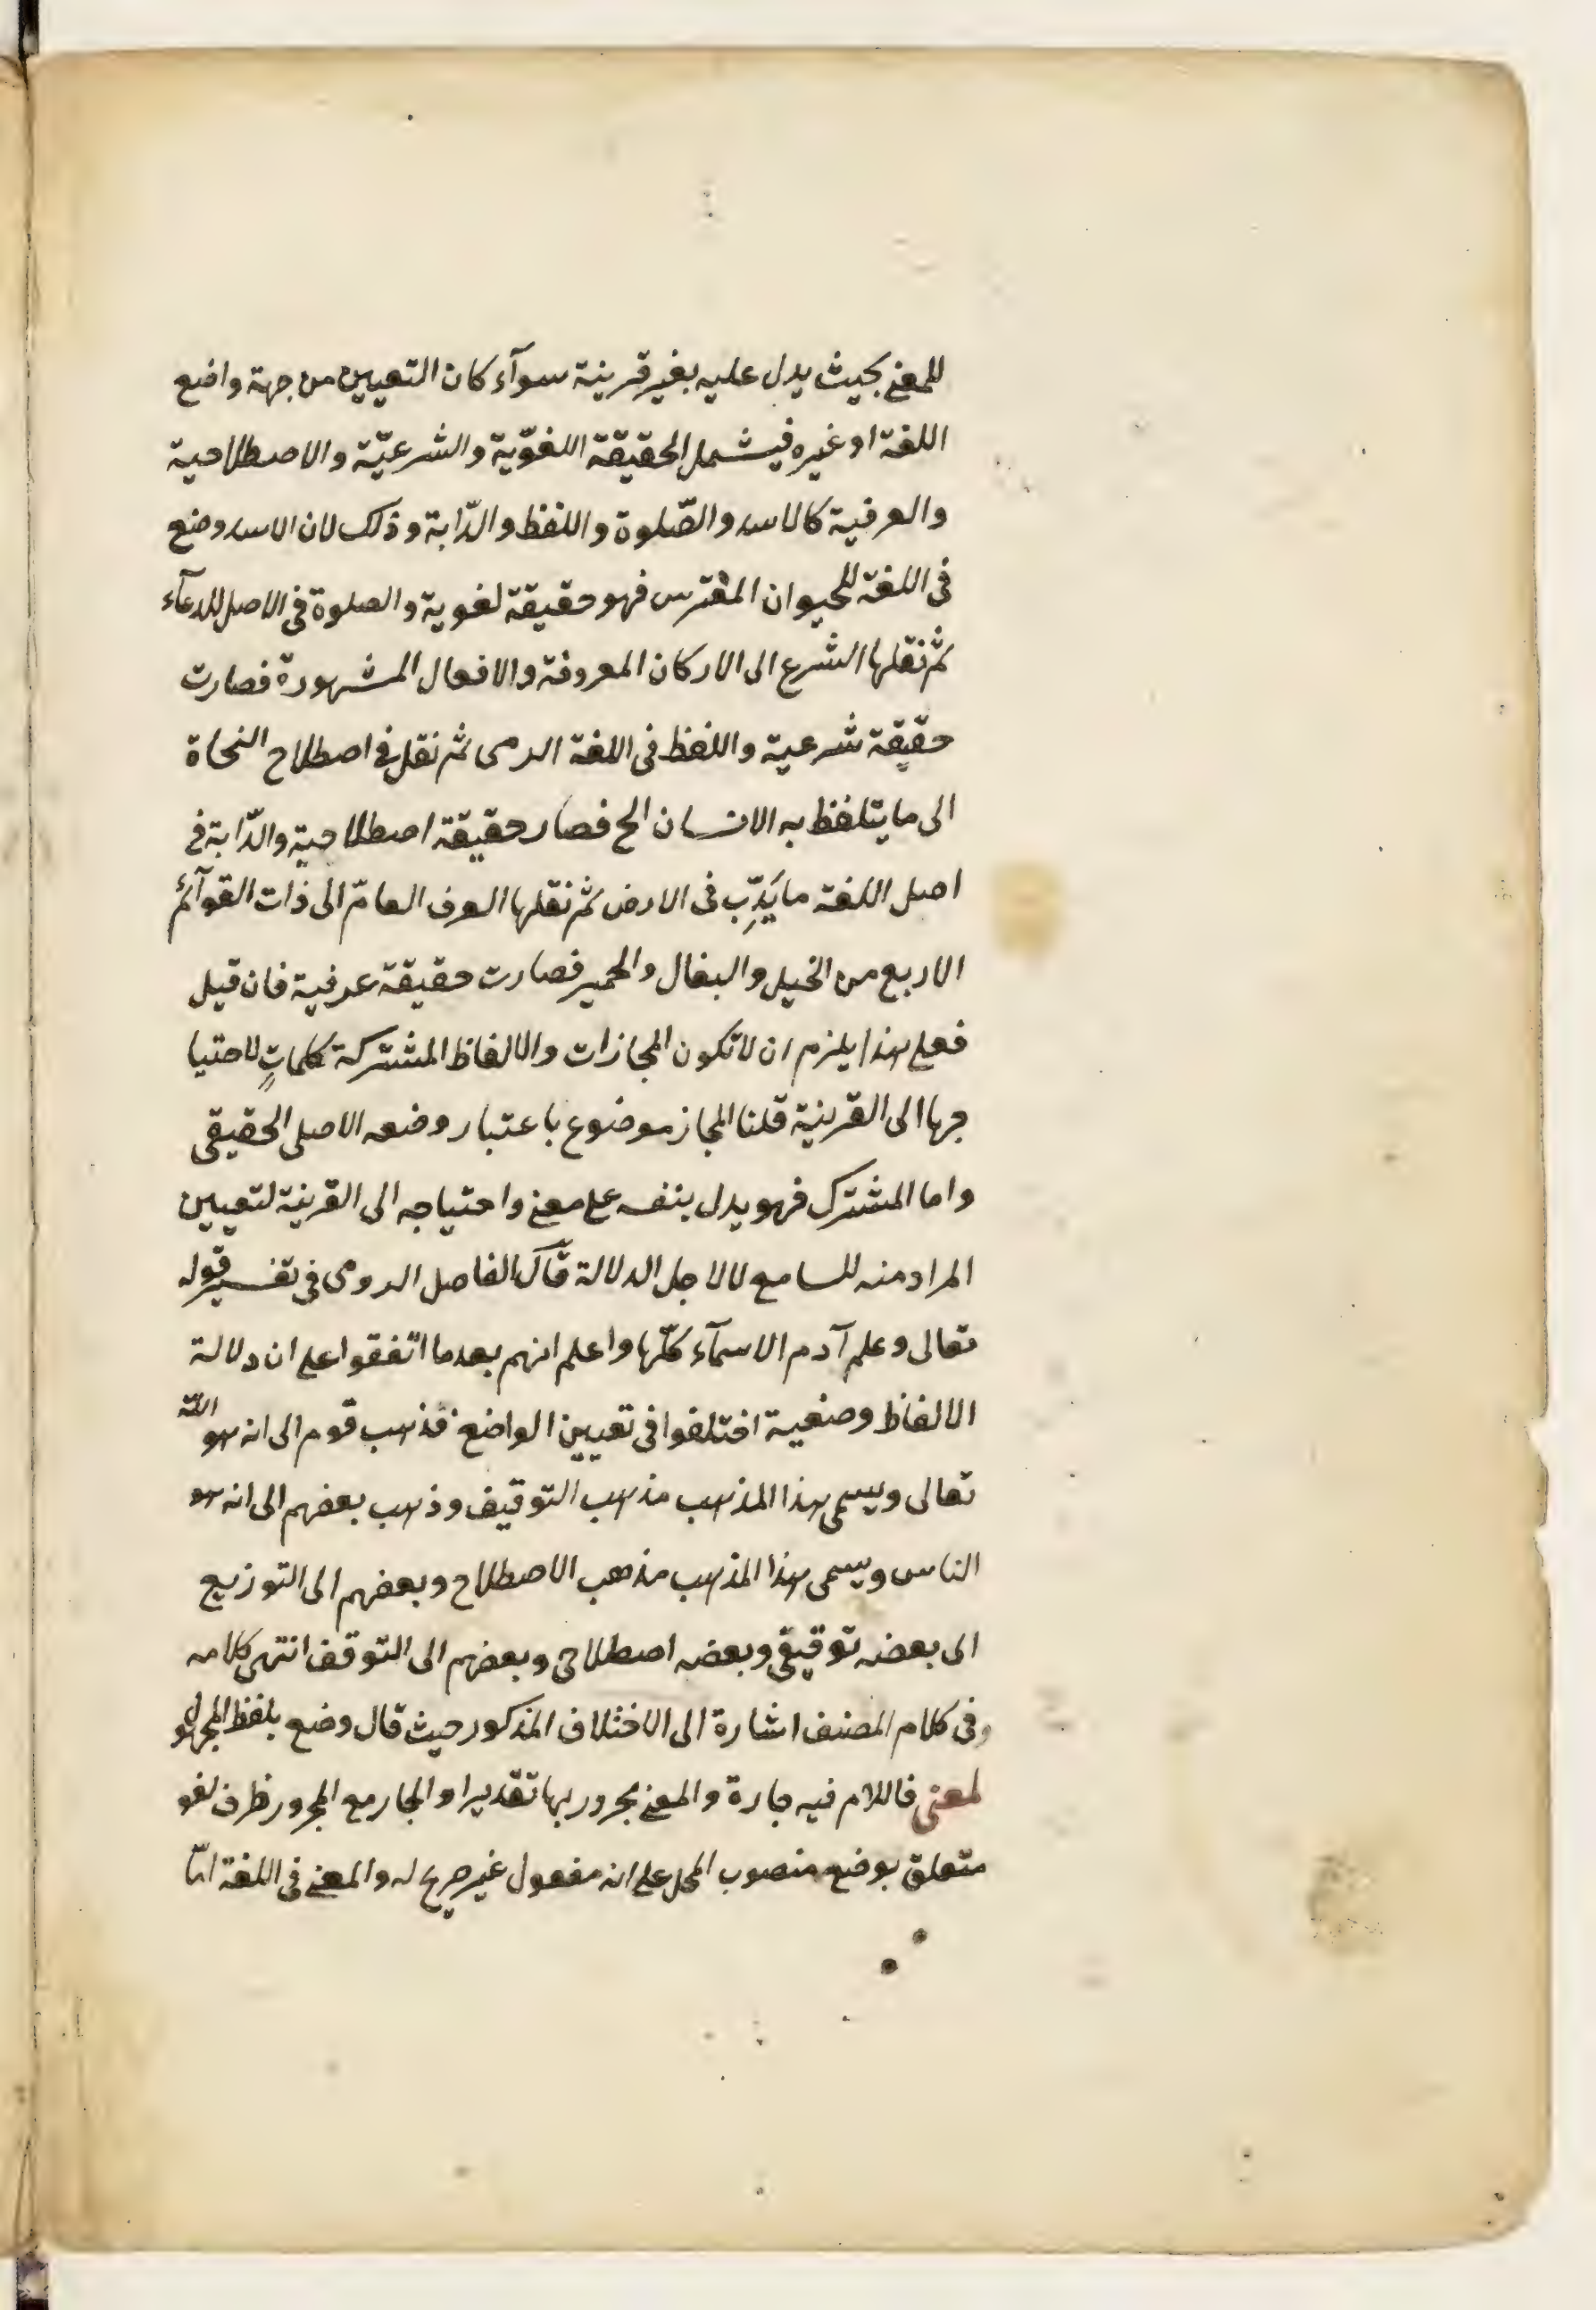 للمعنى بحيث يدل عليه بغير قرينة سوآء كان التعيين من جهة واضع
اللغة او غيره فيشمل الحقيقة اللغوّية والشرعيّة والاصطلاحية
والعرفية كالاسد والصّلوة واللفظ والدّابة وذلك لان الاسد وضع
فى اللغة للحيوان المفترس فهو حقيقة لغوية والصلوة فى الاصل للدعآء
ثم نقلها الشرع الى الاركان المعروفة والافعال المشهورة فصارت
حقيقة شرعية واللفظ فى اللغة الرمى ثم نقل فى اصطلاح النحاة
الى ما يتلفظ به الانسان الخ فصار حقيقة اصطلاحية والدّابة فى
اصل اللغة ما يَدِبّ فى الارض ثم نقلها العرف العامّ الى ذات القوآئم
الاربع من الخيل والبغال والحمير فصارت حقيقة عرفية فان قيل
فعلى هذا يلزم ان لا تكون المجازات والالفاظ المشتركة كلماتٍ لاحتيا
جها الى القرينة قلنا المجاز موضوع باعتبار وضعه الاصلى الحقيقى
واما المشترك فهو يدل بنفسه على معنى واحتياجه الى القرينة لتعيين
المراد منه للسامع لا لاجل الدلالة قال الفاضل الرومى فى تفسير قوله
تعالى وعلم آدم الاسمآء كلّها واعلم انهم بعد ما اتّفقوا على ان دلالة
الالفاظ وضعية اختلفوا فى تعيين الواضع فذهب قوم الى انه هو الله
تعالى ويسمى هذا المذهب مذهب التوقيف وذهب بعضهم الى انه هو
الناس ويسمى هذا المذهب مذهب الاصطلاح وبعضهم الى التوزيع
الى بعضه توقيفى وبعضه اصطلاحى وبعضهم الى التوقف انتهى كلامه
وفى كلام المصنف اشارة الى الاختلاف المذكور حيث قال وضع بلفظ المجهول
لمعنى فاللام فيه جارة والمعنى مجرور بها تقديرا والجار مع المجرور ظرف لغو
متعلق بوضع منصوب المحل على انه مفعول غير صريح له والمعنى فى اللغة امّا